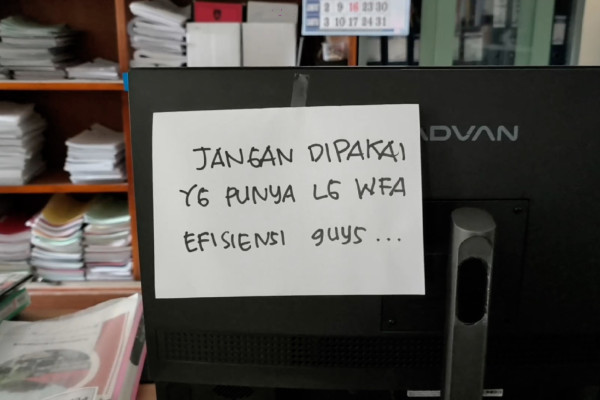 2 9 16 23 30
3 10 17 24 31
ADVAN
JANGAN DIPAKAI
YG PUNYA LG WFA
EFISIENSI guys...